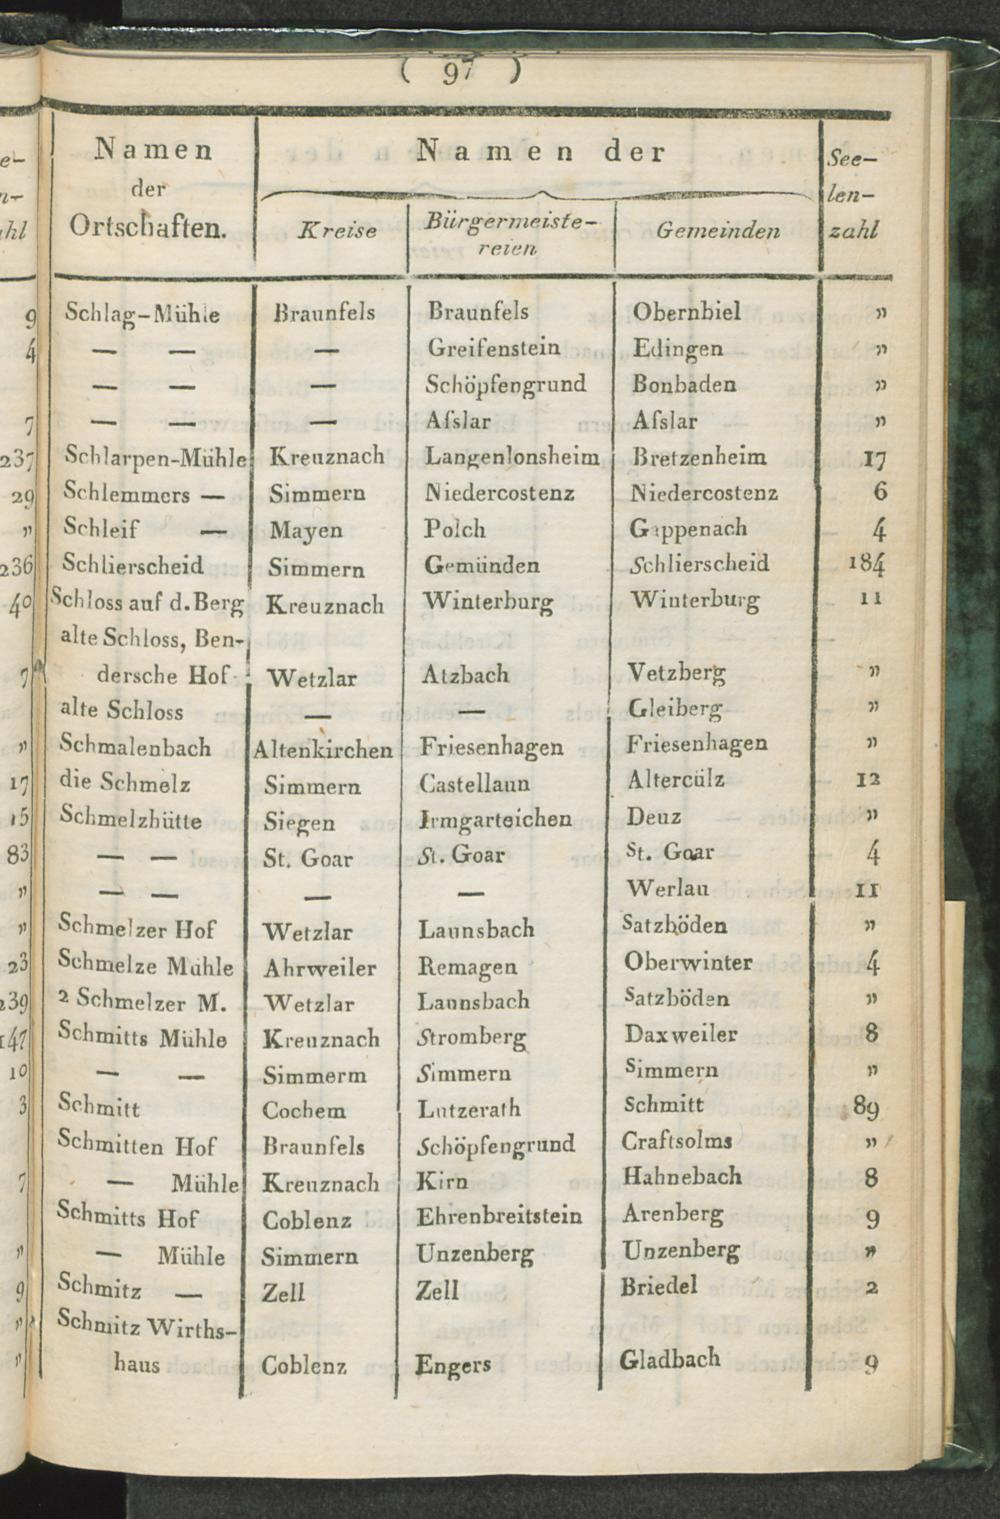 ( 97 )
Namen der Ortschaften. | Namen der | See-
Kreise | Bürgermeiste- | Gemeinden | len-
reien | zahl
Schlag-Mühle Braunfels Braunfels Obernbiel "
— — — Greifenstein Edingen "
— — — Schöpfengrund Bonbaden "
— — — Aſslar Aſslar "
Schlarpen-Mühle Kreuznach Langenlonsheim Bretzenheim 17
Schlemmers — Simmern Niedercostenz Niedercostenz 6
Schleif — Mayen Polch Gappenach 4
Schlierscheid Simmern Gemünden Schlierscheid 184
Schloss auf d. Berg Kreuznach Winterburg Winterburg 11
alte Schloss, Ben-
dersche Hof Wetzlar Atzbach Vetzberg "
alte Schloss — — Gleiberg "
Schmalenbach Altenkirchen Friesenhagen Friesenhagen "
die Schmelz Simmern Castellaun Altercülz 12
Schmelzhütte Siegen Irmgarteichen Deuz "
— — St. Goar St. Goar St. Goar 4
— — — — Werlau 11
Schmelzer Hof Wetzlar Launsbach Satzböden "
Schmelze Mühle Ahrweiler Remagen Oberwinter 4
2 Schmelzer M. Wetzlar Launsbach Satzböden "
Schmitts Mühle Kreuznach Stromberg Daxweiler 8
— — Simmerm Simmern Simmern "
Schmitt Cochem Lutzerath Schmitt 89
Schmitten Hof Braunfels Schöpfengrund Craftsolms "
— Mühle Kreuznach Kirn Hahnebach 8
Schmitts Hof Coblenz Ehrenbreitstein Arenberg 9
— Mühle Simmern Unzenberg Unzenberg "
Schmitz — Zell Zell Briedel 2
Schmitz Wirths-
haus Coblenz Engers Gladbach 9